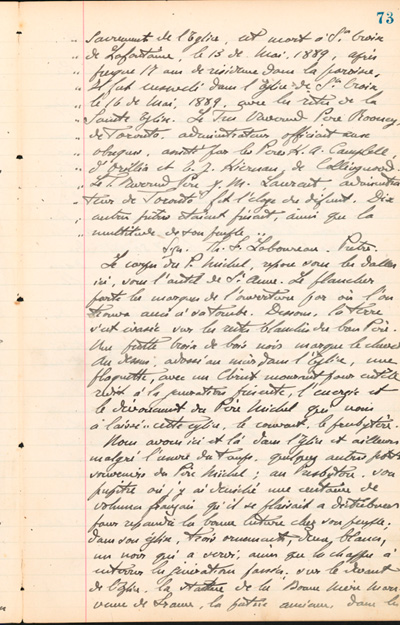 73
" Sacrement de l'Eglise, est mort à Ste Croix
" de Lafontaine, le 13 de Mai, 1889, après
" presque 17 ans de résidence dans la paroisse,
" et fut enseveli dans l'Eglise de Ste Croix
" le 16 de Mai, 1889, avec les rites de la
" Sainte Eglise. Le Très Révérend Père Rooney
" de Toronto, administrateur officiant aux
" obsèques, assisté par les Pères K. A. Campbell,
" d'Orillia et E. J. Kiernan, de Collingwood.
" Le T. Révérend Père J. M. Laurent, administra
" teur de Toronto fit l'éloge du défunt. Dix
" autres prêtres étaient présents, ainsi que la
" multitude de son peuple. "
Sgn. Th. F. Laboureau. Prêtre.
Le corps du P. Michel, repose sous les dalles
ici, sous l'autel de Ste Anne. Le plancher
porte les marques de l'ouverture par où l'on
trouva accès à sa tombe. Dessous, la terre
s'est sur les restes du bon Père.
Une petite croix de bois noir marque le
au dessus, adossé au mur dans l'Eglise, une
plaquette, avec un Christ mourant pour
redit à la génération présente, l'énergie et
le dévouement du Père Michel qui nous
a laissé cette église, le couvent, le presbytère.
Nous avons ici et là dans l'Eglise et ailleurs
malgré l'œuvre du temps, quelques autres petits
souvenirs du Père Michel; au Presbytère, son
pupitre où j'y ai déniché une centaine de
volumes français, qu'il se plaisait à distribuer
pour répandre la bonne lecture chez son peuple,
dans son église, trois ornements, deux blancs,
un noir qui a servi, ainsi que la chappe à
enterrer les générations passées. Sur le devant
de l'Eglise, la statue de la Bonne Mère Marie
venue de France, la patrie ancienne, dans les